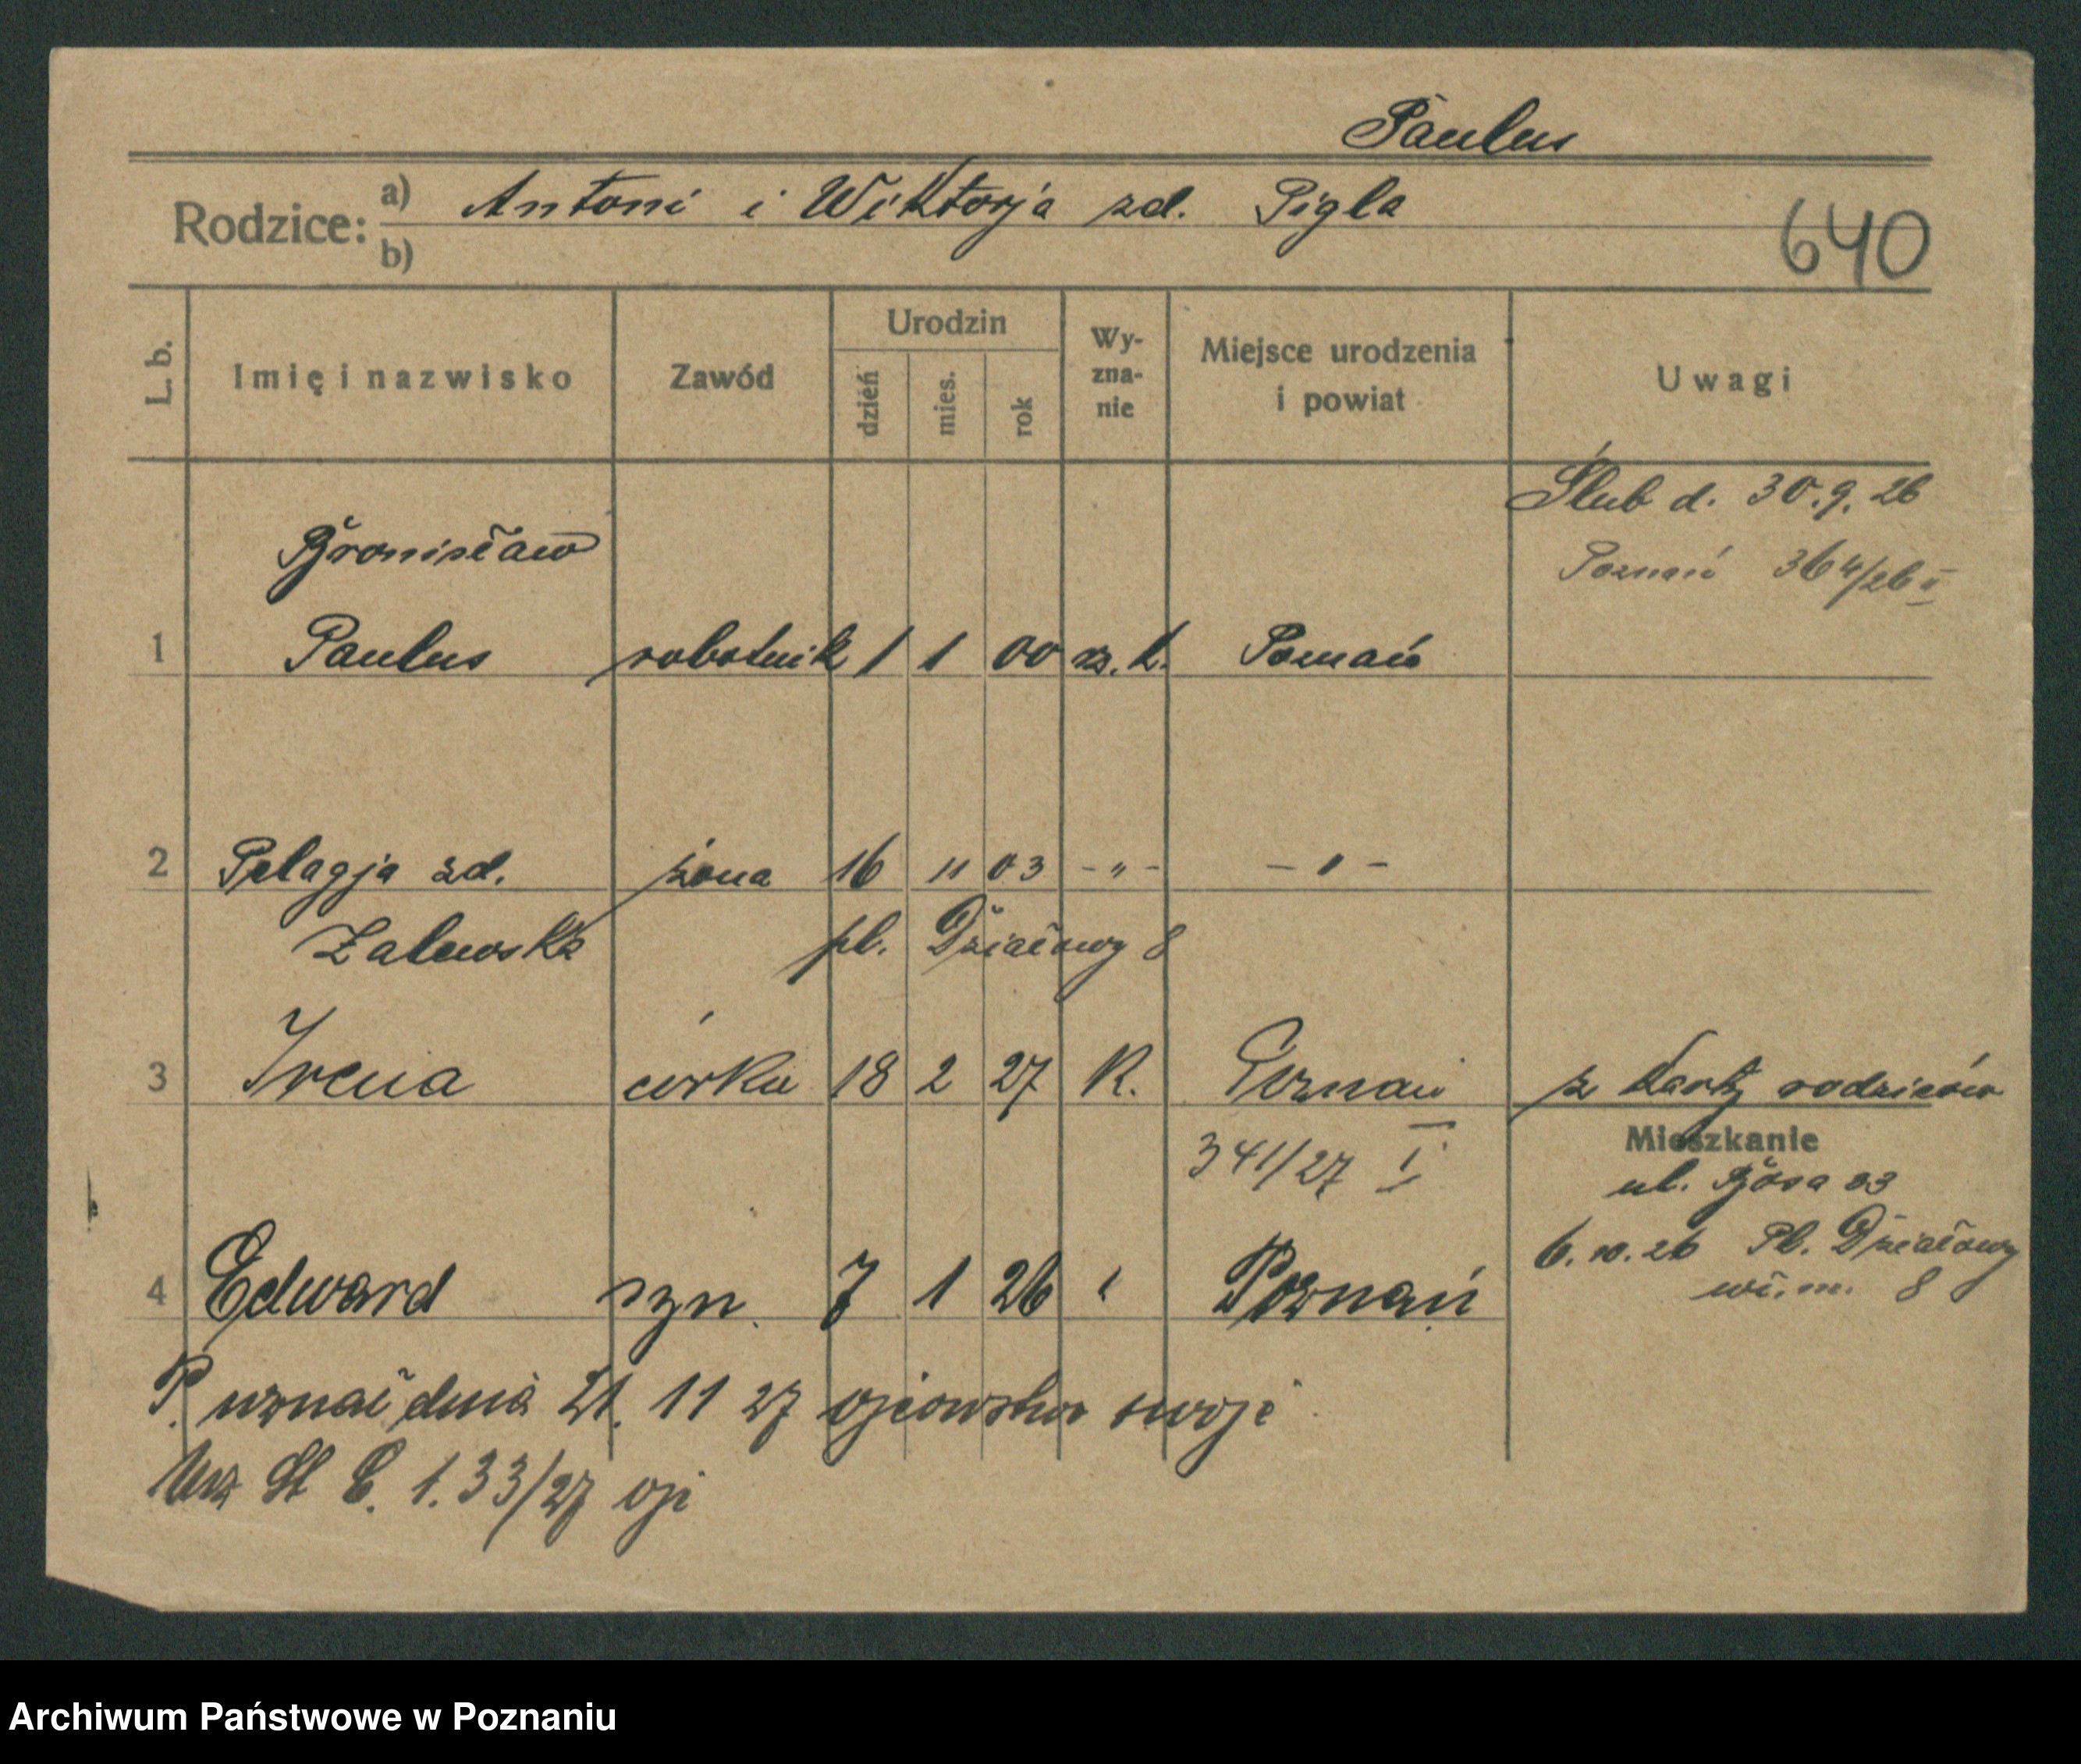 Paulus
Rodzice: a) Antoni i Wiktorja zd. Pigla
b)
640
L. b. Imię i nazwisko Zawód Urodzin dzień mies. rok Wy-zna-nie Miejsce urodzenia i powiat Uwagi
Ślub d. 30.9.26
Poznań 364/26 II
Bronisław
1 Paulus robotnik 1 1 00 rz. k. Poznań
2 Pelagja zd. żona 16 11 03 -"- -"-
Zalewska pl. Działowy 8
3 Irena córka 18 2 27 K. Poznań z karty rodziców
341/27 I
Mieszkanie
ul. Bósa 23
6.10.26 Pl. Działowy
wł. m. 8
4 Edward syn 7 1 26 " Poznań
P. uznał dnia 21. 11 27 ojcowstwo swoje
Urz St C. 1.33/27
Archiwum Państwowe w Poznaniu